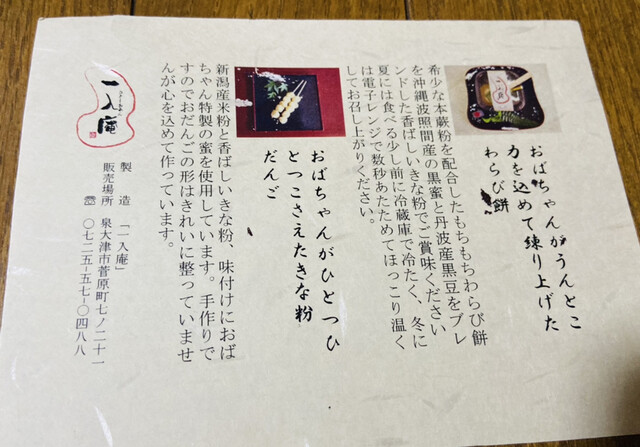 おばちゃんがうんとこ
力を込めて練り上げた
わらび餅
希少な本蕨粉を配合したもちもちわらび餅
を沖縄波照間産の黒蜜と丹波産黒豆をブレ
ンドした香ばしいきな粉でご賞味ください
夏には食べる少し前に冷蔵庫で冷たく、冬に
は電子レンジで数秒あたためてほっこり温く
してお召し上がりください。
おばちゃんがひとつひ
とつこさえたきな粉
だんご
新潟産米粉と香ばしいきな粉、味付けにおば
ちゃん特製の蜜を使用しています。手作りで
すのでおだんごの形はきれいに整っていませ
んが心を込めて作っています。
一入庵
製造 「一入庵」
販売場所 泉大津市菅原町七ノ二十一
☎ 〇七二五-五七-〇四八八